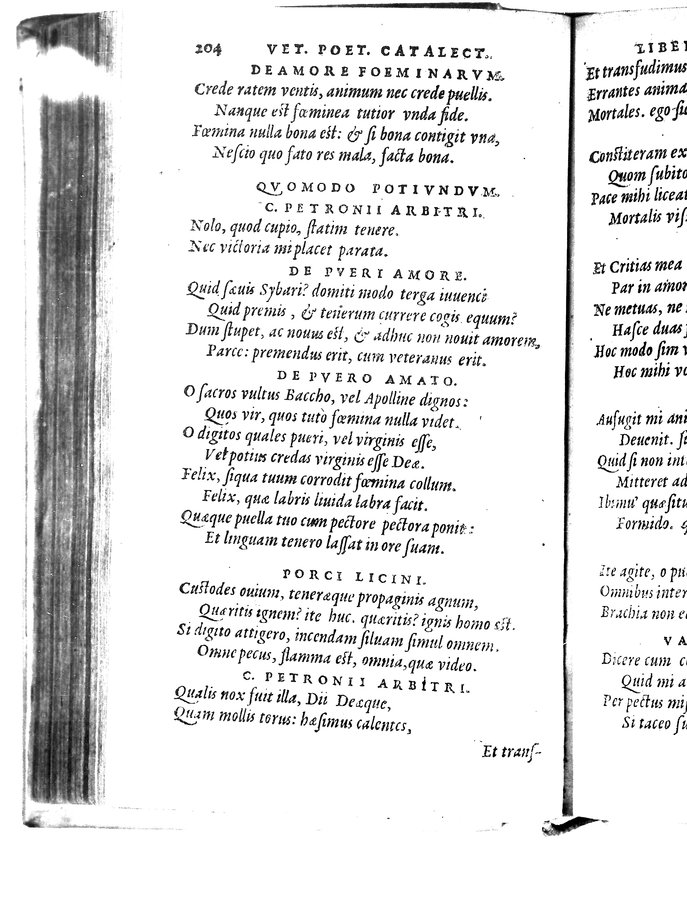 204 VET. POET. CATALECT.
DE AMORE FOEMINARVM.
Crede ratem ventis, animum nec crede puellis.
Nanque est fœminea tutior vnda fide.
Fœmina nulla bona est: & si bona contigit vna,
Nescio quo fato res mala, facta bona.
QVOMODO POTIVNDVM.
C. PETRONII ARBITRI.
Nolo, quod cupio, statim tenere.
Nec victoria mi placet parata.
DE PVERI AMORE.
Quid sæuis Sybari? domiti modo terga iuuenci
Quid premis, & tenerum currere cogis equum?
Dum stupet, ac nouus est, & adhuc non nouit amorem,
Parce: premendus erit, cum veteranus erit.
DE PVERO AMATO.
O sacros vultus Baccho, vel Apolline dignos:
Quos vir, quos tuto fœmina nulla videt.
O digitos quales pueri, vel virginis esse,
Vel potius credas virginis esse Deæ.
Felix, siqua tuum corrodit fœmina collum.
Felix, quæ labris liuida labra facit.
Quæque puella tuo cum pectore pectora ponit:
Et linguam tenero lassat in ore suam.
PORCI LICINI.
Custodes ouium, teneræque propaginis agnum,
Quæritis ignem? ite huc. quæritis? ignis homo est.
Si digito attigero, incendam siluam simul omnem.
Omne pecus, flamma est, omnia, quæ video.
C. PETRONII ARBITRI.
Qualis nox fuit illa, Dii Deæque,
Quam mollis torus: hæsimus calentes,
Et transf-
LIBE
Et transfudimus
Errantes anima
Mortales. ego su
Constiteram ex
Quom subito
Pace mihi liceat
Mortalis vis
Et Critias mea
Par in amor
Ne metuas, ne
Hasce duas
Hoc modo sim v
Hoc mihi vo
Aufugit mi ani
Deuenit. si
Quid si non int
Mitteret ad
Ibimu' quæsitu
Formido. q
Ite agite, o pu
Omnibus inter
Brachia non e
VA
Dicere cum c
Quid mi a
Per pectus mis
Si taceo su